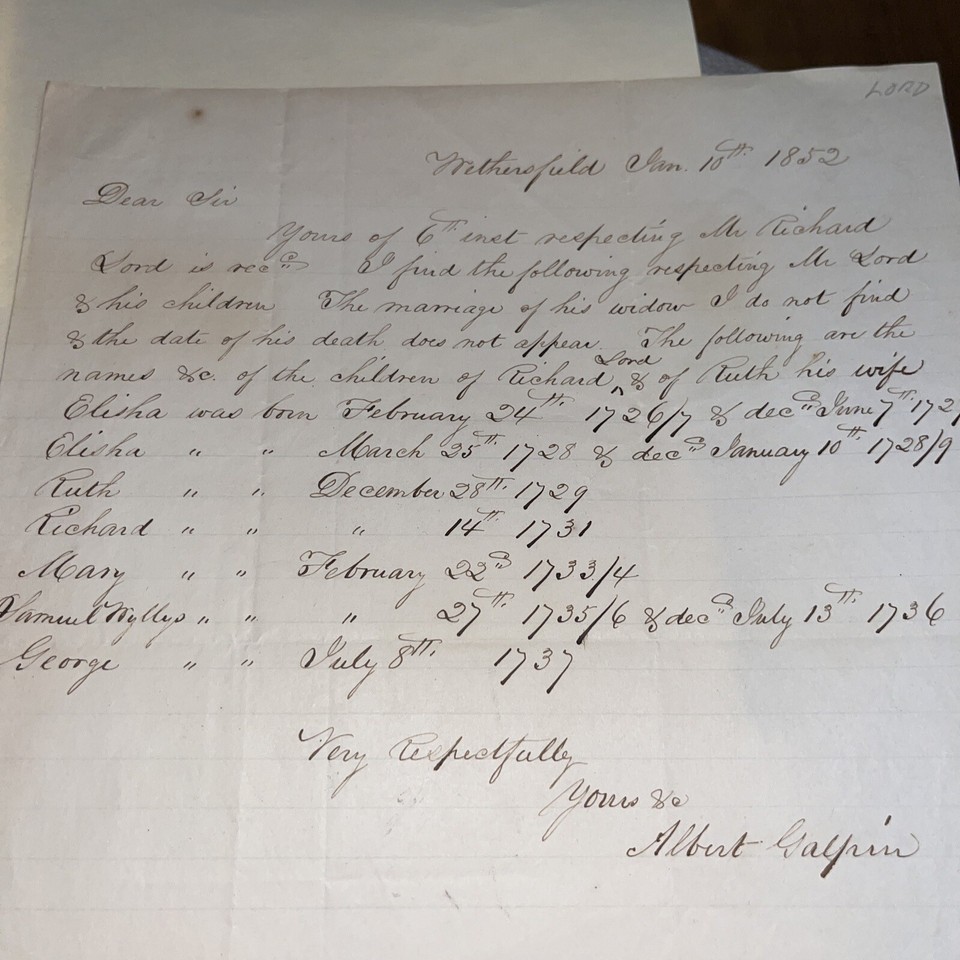 LORD
Wethersfield Jan. 10th 1852
Dear Sir
Yours of 6th inst respecting Mr Richard
Lord is recd I find the following respecting Mr Lord
& his children The marriage of his widow I do not find
& the date of his death does not appear. The following are the
names &c. of the children of Richard Lord & of Ruth his wife
Elisha was born February 24th 1726/7 & decd June 7th 172
Elisha " " March 25th 1728 & decd January 10th 1728/9
Ruth " " December 28th 1729
Richard " " " 14th 1731
Mary " " February 22d 1733/4
Samuel Wyllys " " " 27th 1735/6 & decd July 13th 1736
George " " July 8th 1737
Very Respectfully
Yours &c
Albert Galpin